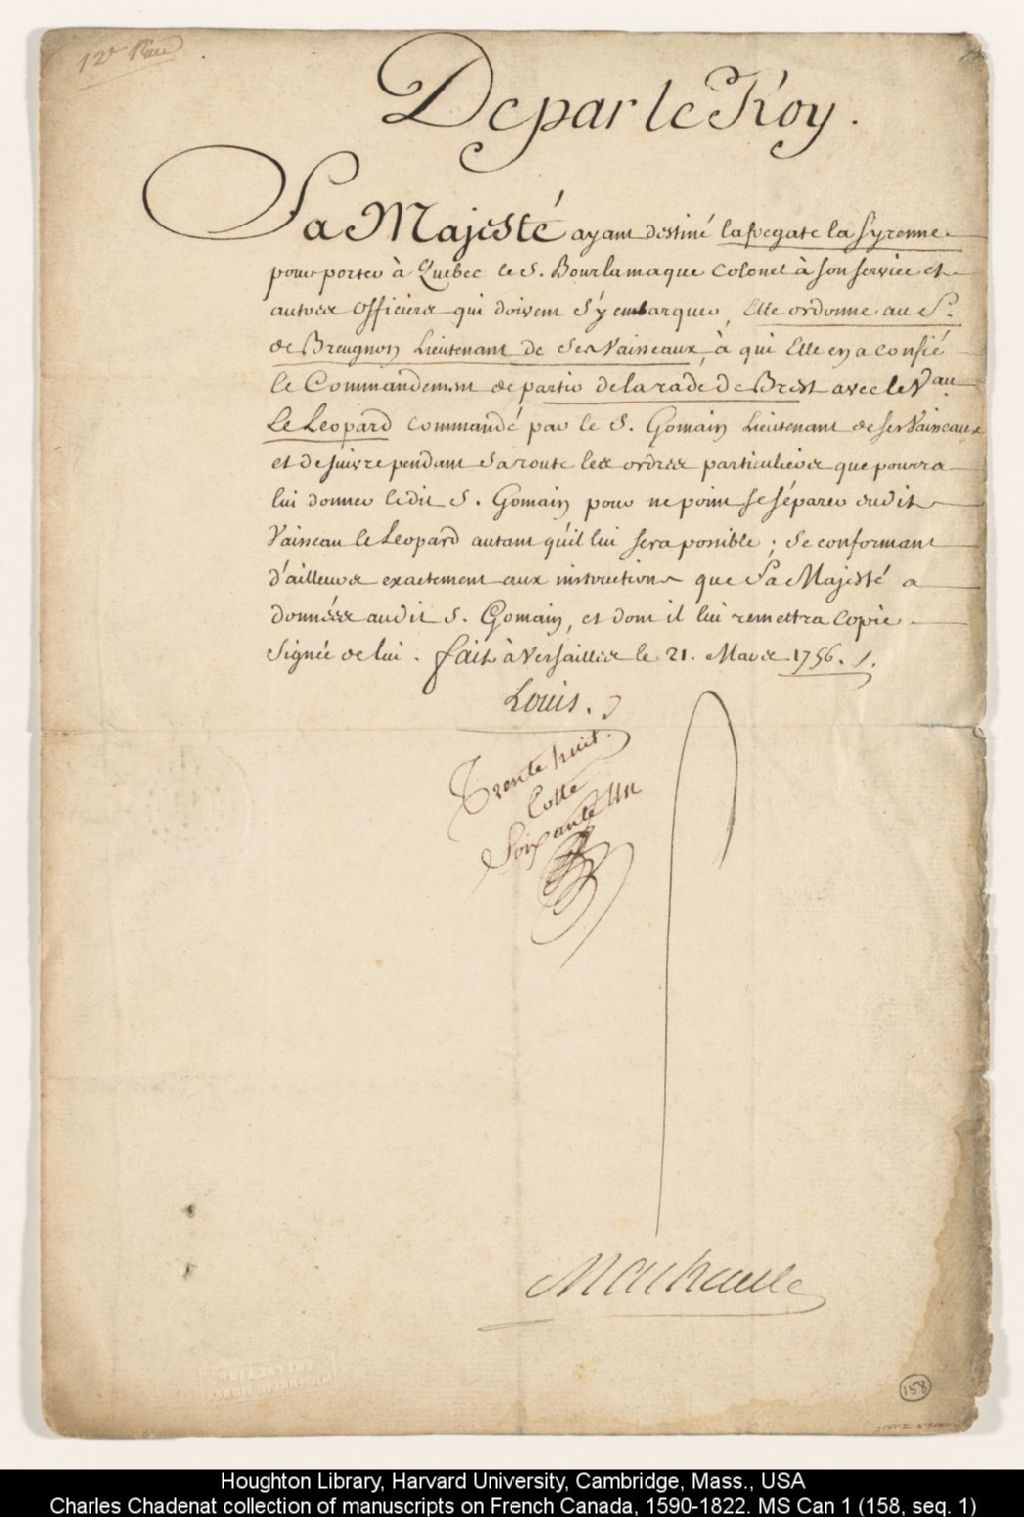 12e
De par le Roy.
Sa Majesté ayant destiné la fregate la Syrenne
pour porter à Quebec le S. Bourlamaque Colonel à son service et
autres officiers qui doivent s'y embarquer, Elle ordonne au Sr.
de Breugnon Lieutenant de ses Vaisseaux, à qui Elle en a confié
le Commandement de partir de la rade de Brest avec le Vau.
Le Leopard commandé par le S. Gomain Lieutenant de ses Vaisseaux
et de suivre pendant sa route les ordres particuliers que pourra
lui donner ledit S. Gomain pour ne point se séparer dudit
Vaisseau le Leopard autant qu'il lui sera possible; se conformant
d'ailleurs exactement aux instructions que Sa Majesté a
données audit S. Gomain, et dont il lui remettra copie
signée de lui. fait à Versailles le 21. Mars 1756. /.
Louis.
Trente huit.
Cotte
Soixante Un
Machault
158
Houghton Library, Harvard University, Cambridge, Mass., USA
Charles Chadenat collection of manuscripts on French Canada, 1590-1822. MS Can 1 (158, seq. 1)